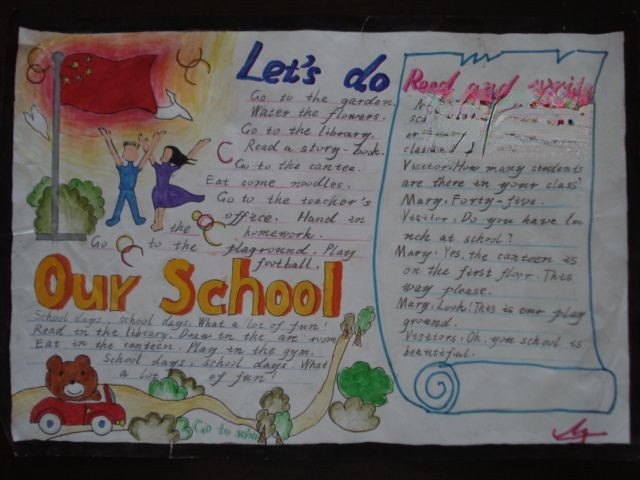 Let's do
Go to the garden.
Wazer the flowers.
Go to the library.
Read a story-book.
Go to the cantee.
Eat some noodles.
Go to the teacher's
office. Hand in
the homework.
Go to the plaground. Play
football.
Our School
School days, school days. What a lot of fun!
Read in the library. Draw in the are room
Eat in the canteen. Play in the gym.
School days, school days. What
a lot of fun!
Go to
Read and
Visitor: How many students
are there in your class?
Mary: Forty-five.
Visitor: Do you have lu
nch at school?
Mary: Yes, the canteen is
on the first floor. This
way please.
Mary: Look! This is our play
ground.
Visitors: Oh, you school is
beautiful.